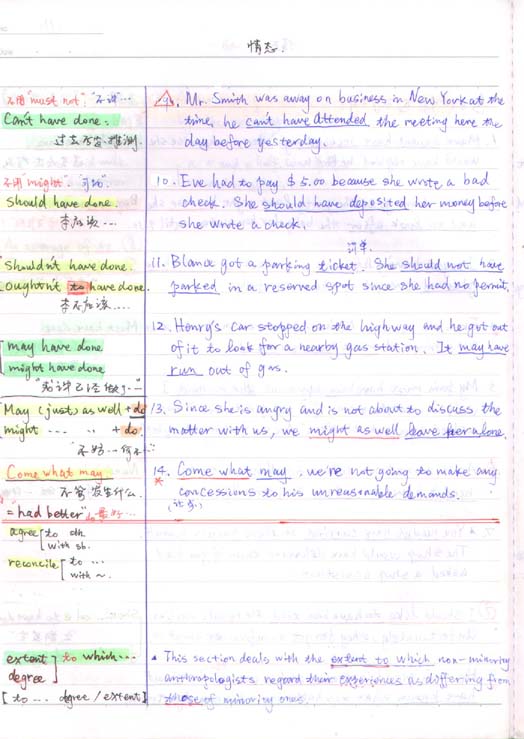 情态.
不用"must not". "不许"...
Can't have done.
过去否定推测
9. Mr. Smith was away on business in New York at the
time, he can't have attended the meeting here the
day before yesterday.
不用 might. "可能"
should have done.
本应该...
10. Eve had to pay $5.00 because she wrote a bad
check. She should have deposited her money before
she wrote a check.
罚单.
shouldn't have done.
oughtn't to have done.
本不应该....
11. Blance got a parking ticket. She should not have
parked in a reserved spot since she had no permit.
may have done
might have done
"或许已经做了..."
12. Henry's car stopped on the highway and he got out
of it to look for a nearby gas station. It may have
run out of gas.
May (just) as well + do
might ... .. + do.
不妨... 何不...
13. Since she is angry and is not about to discuss the
matter with us, we might as well leave her alone.
Come what may
不管发生什么.
= "had better" do 最好...
14. Come what may, we're not going to make any
concessions to his unreasonable demands.
agree to sth
with sb.
reconcile to ...
with ~.
extent to which...
degree
[to ... degree / extent]
▲ This section deals with the extent to which non-minority
anthropologists regard their experiences as differing from
those of minority ones.